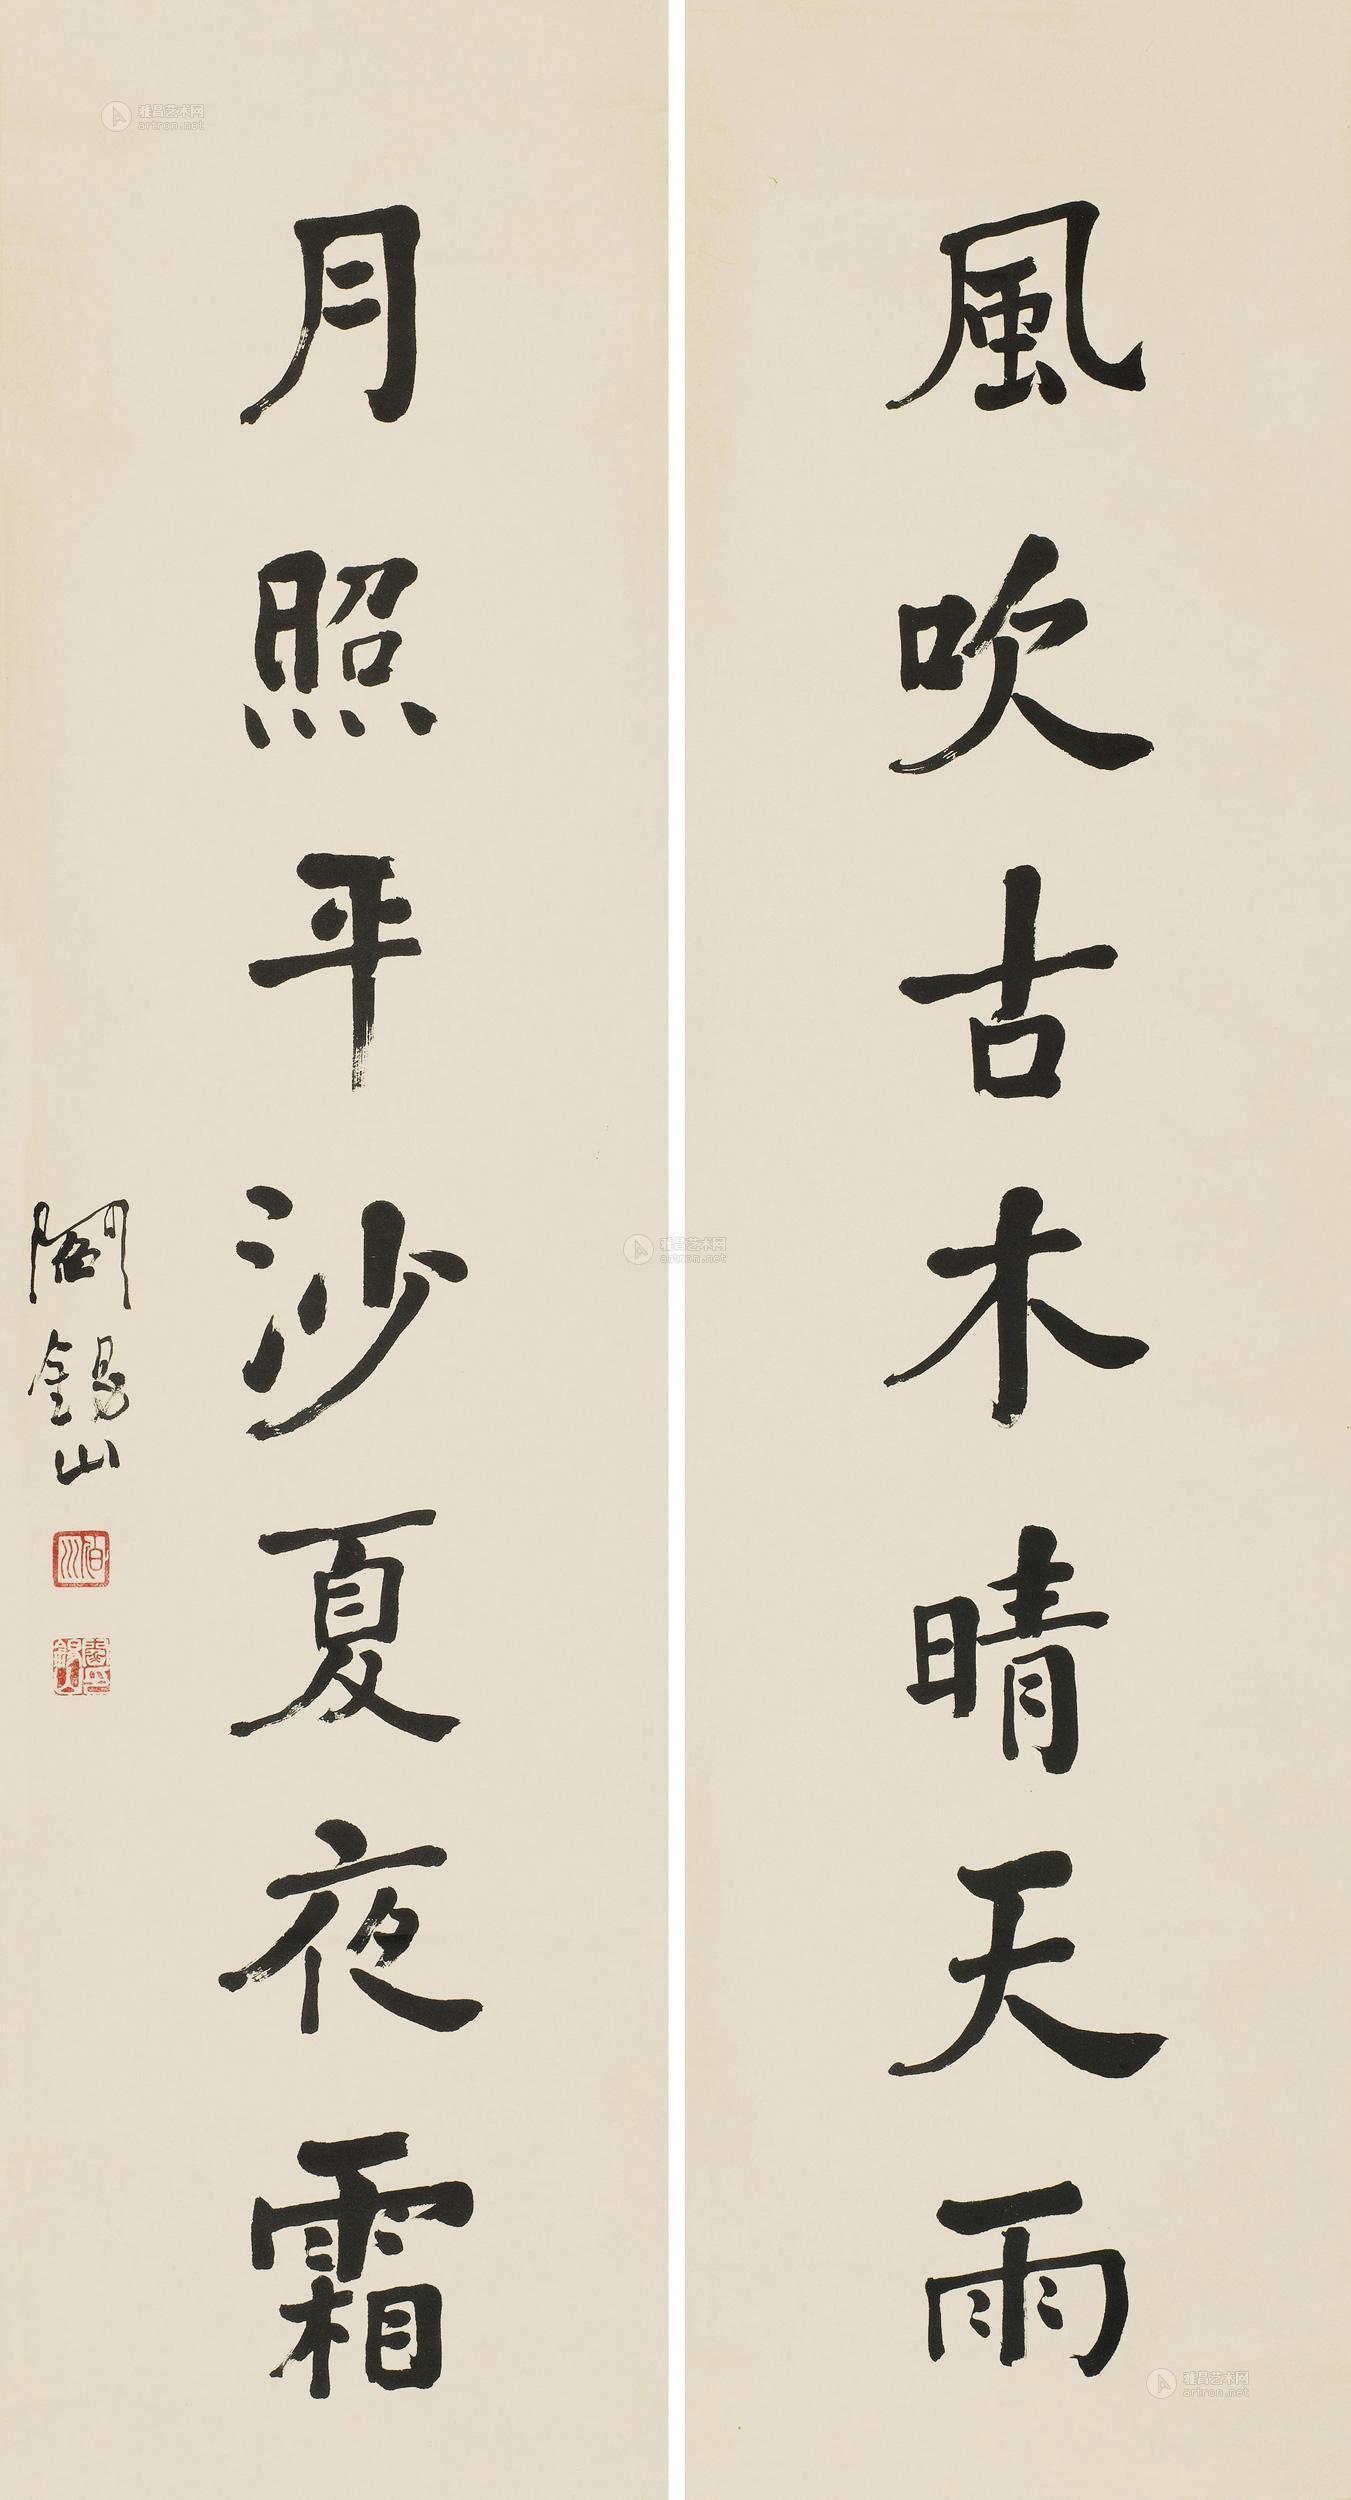 風吹古木晴天雨
月照平沙夏夜霜
閻錫山
伯川
雅昌艺术网
artron.net
雅昌艺术网
artron.net
雅昌艺术网
artron.net